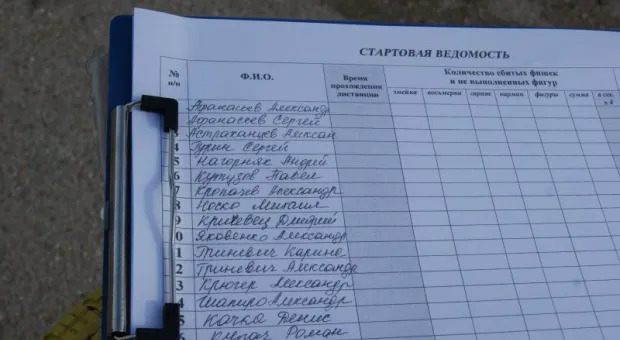 СТАРТОВАЯ ВЕДОМОСТЬ
№ п/п Ф.И.О. Время прохождения дистанции Количество сбитых фишек и не выполненных фигур
змейка восьмерка карман фигуры сумма в сек. х 4
Афанасьев Александр
Афанасьев Сергей
Астраханцев Алексан
4 Гурин Сергей
5 Нагорняк Андрей
6 Кутузов Павел
7 Кропачев Александр
8 Носко Михаил
9 Крикевец Дмитрий
0 Яковенко Александр
1 Гриневич Карине
2 Гриневич Александр
3 Крюгер Александр
4 Шапиро Александр
5 Качка Денис
Роман